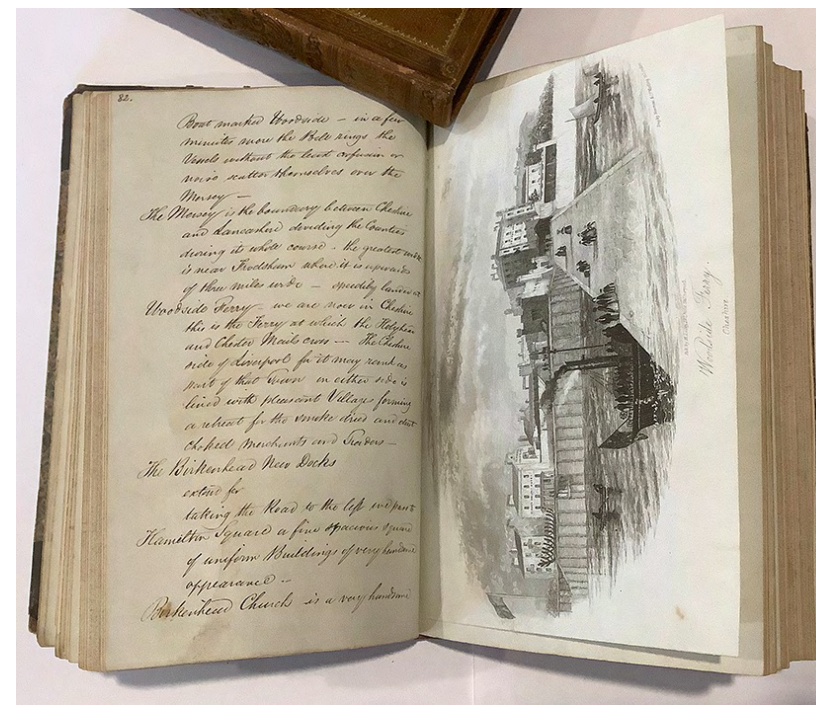 82.
Boat marked Woodside – in a few
minutes more the Bell rings the
Vessels without the least confusion or
noise scatter themselves over the
Mersey –
The Mersey is the boundary between Cheshire
and Lancashire dividing the Counties
during its whole course – the greatest width
is near Frodsham where it is upwards
of three miles wide – speedily landed at
Woodside Ferry – we are now in Cheshire
this is the Ferry at which the Holyhead
and Chester Mails cross – The Cheshire
side of Liverpool for it may rank as
part of that Town on either side is
lined with pleasant Villages forming
a retreat for the smoke dried and dust
choked Merchants and Traders –
The Birkenhead New Docks
extend far
taking the Road to the left we pass to
Hamilton Square a fine spacious square
of uniform Buildings of very handsome
appearance –
Birkenhead Church is a very handsome
Woodside Ferry.
Cheshire